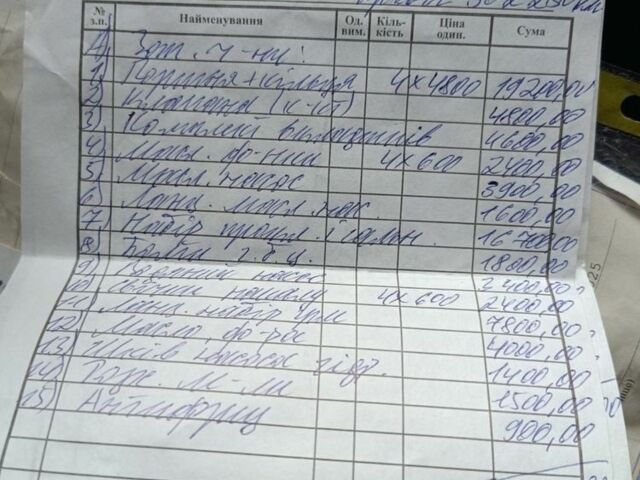 № з.п. Найменування Од. вим. Кіль-кість Ціна один. Сума
А) Зап. ч-ни:
1) Поршня + кільця 4х4800 19200,00
2) Клапана (к-кт) 4800,00
3) Комплект вкладишів 4600,00
4) Масл. фо-нки 4х600 2400,00
5) Масл. насос 3900,00
6) Ланц. масл. нас. 1600,00
7) Набір прокл. і сальн. 16700,00
8) Болти г.б.ц. 1800,00
9) Водяний насос 2400,00
10) Свічки 4х600 2400,00
11) Ланц. набір грм 7800,00
12) Масло, 4000,00
13) Шків насоса гідр. 1400,00
14) 1500,00
15) Антифриз 900,00